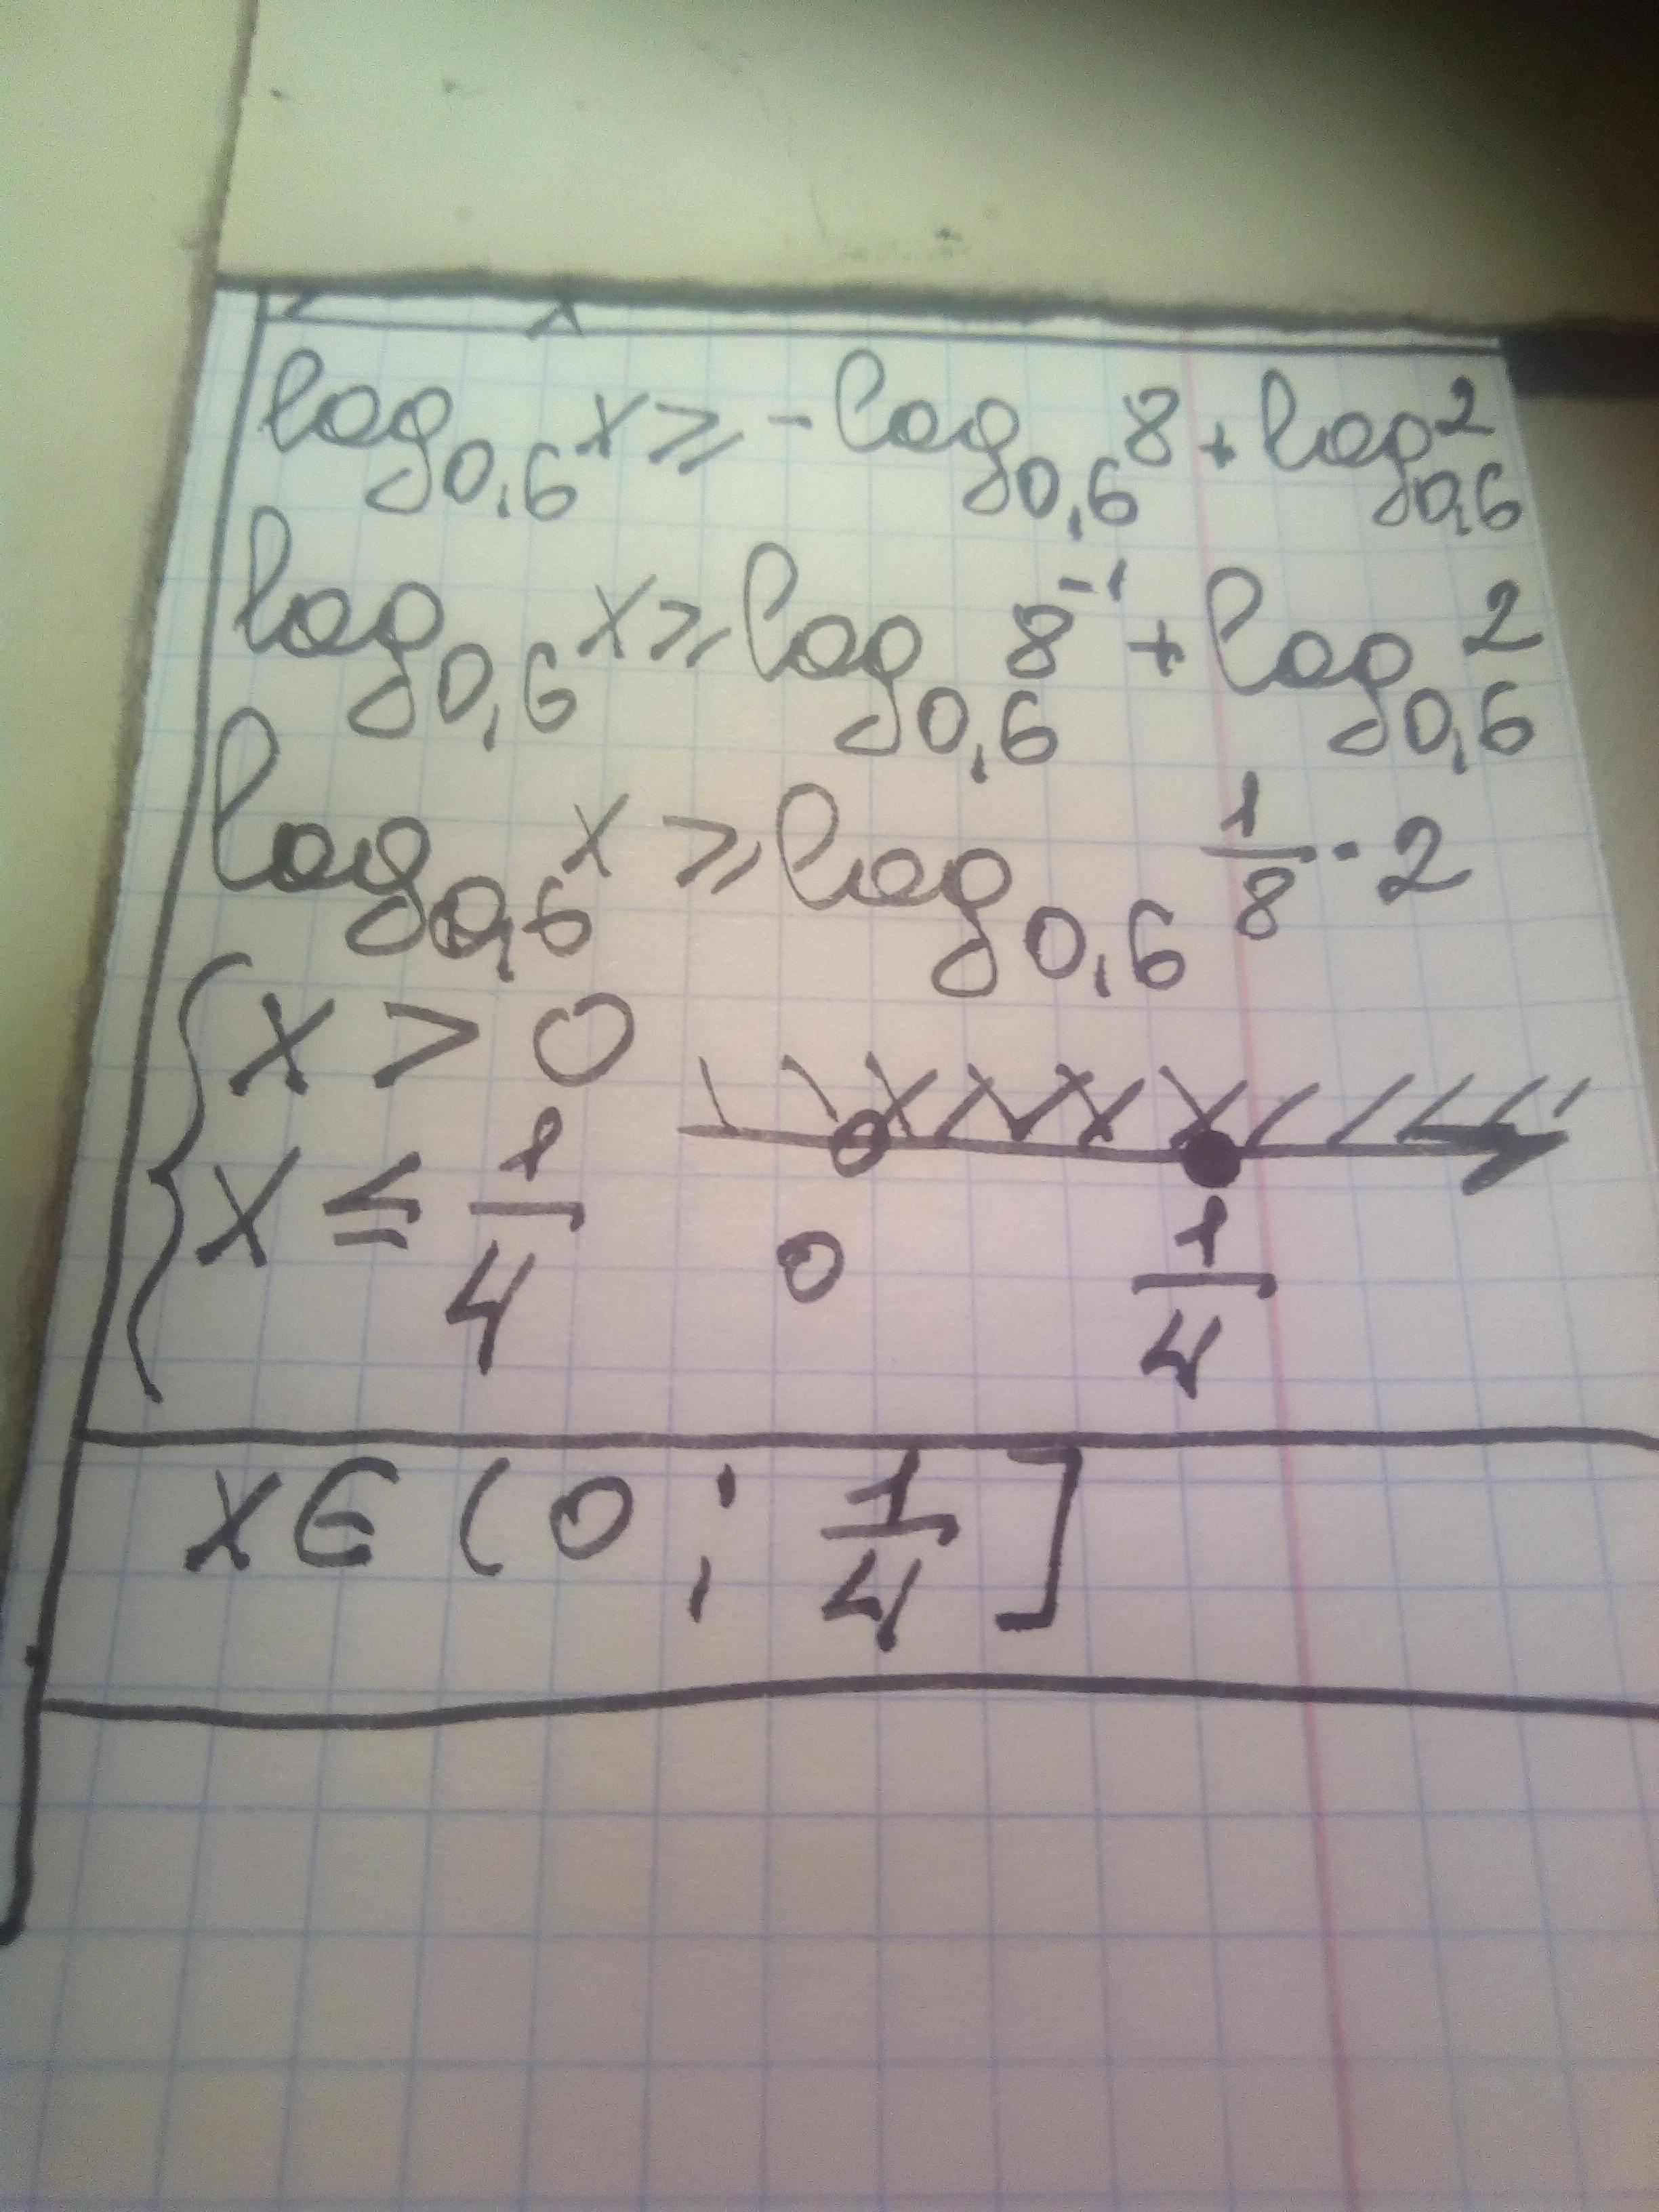 log₀,₆ x ⩾ - log₀,₆ 8 + log₀,₆ 2
log₀,₆ x ⩾ log₀,₆ 8⁻¹ + log₀,₆ 2
log₀,₆ x ⩾ log₀,₆ 1/8 · 2
{ x > 0
x ≤ 1/4
0 1/4
x ∈ (0 ; 1/4]